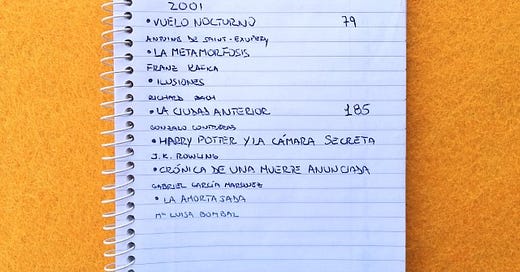 2001
• VUELO NOCTURNO 79
ANTOINE DE SAINT-EXUPÉRY
• LA METAMORFOSIS
FRANZ KAFKA
• ILUSIONES
RICHARD BACH
• LA CIUDAD ANTERIOR 185
GONZALO CONTRERAS
• HARRY POTTER Y LA CÁMARA SECRETA
J.K. ROWLING
• CRÓNICA DE UNA MUERTE ANUNCIADA
GABRIEL GARCÍA MARQUEZ
• LA AMORTAJADA
Mª LUISA BOMBAL